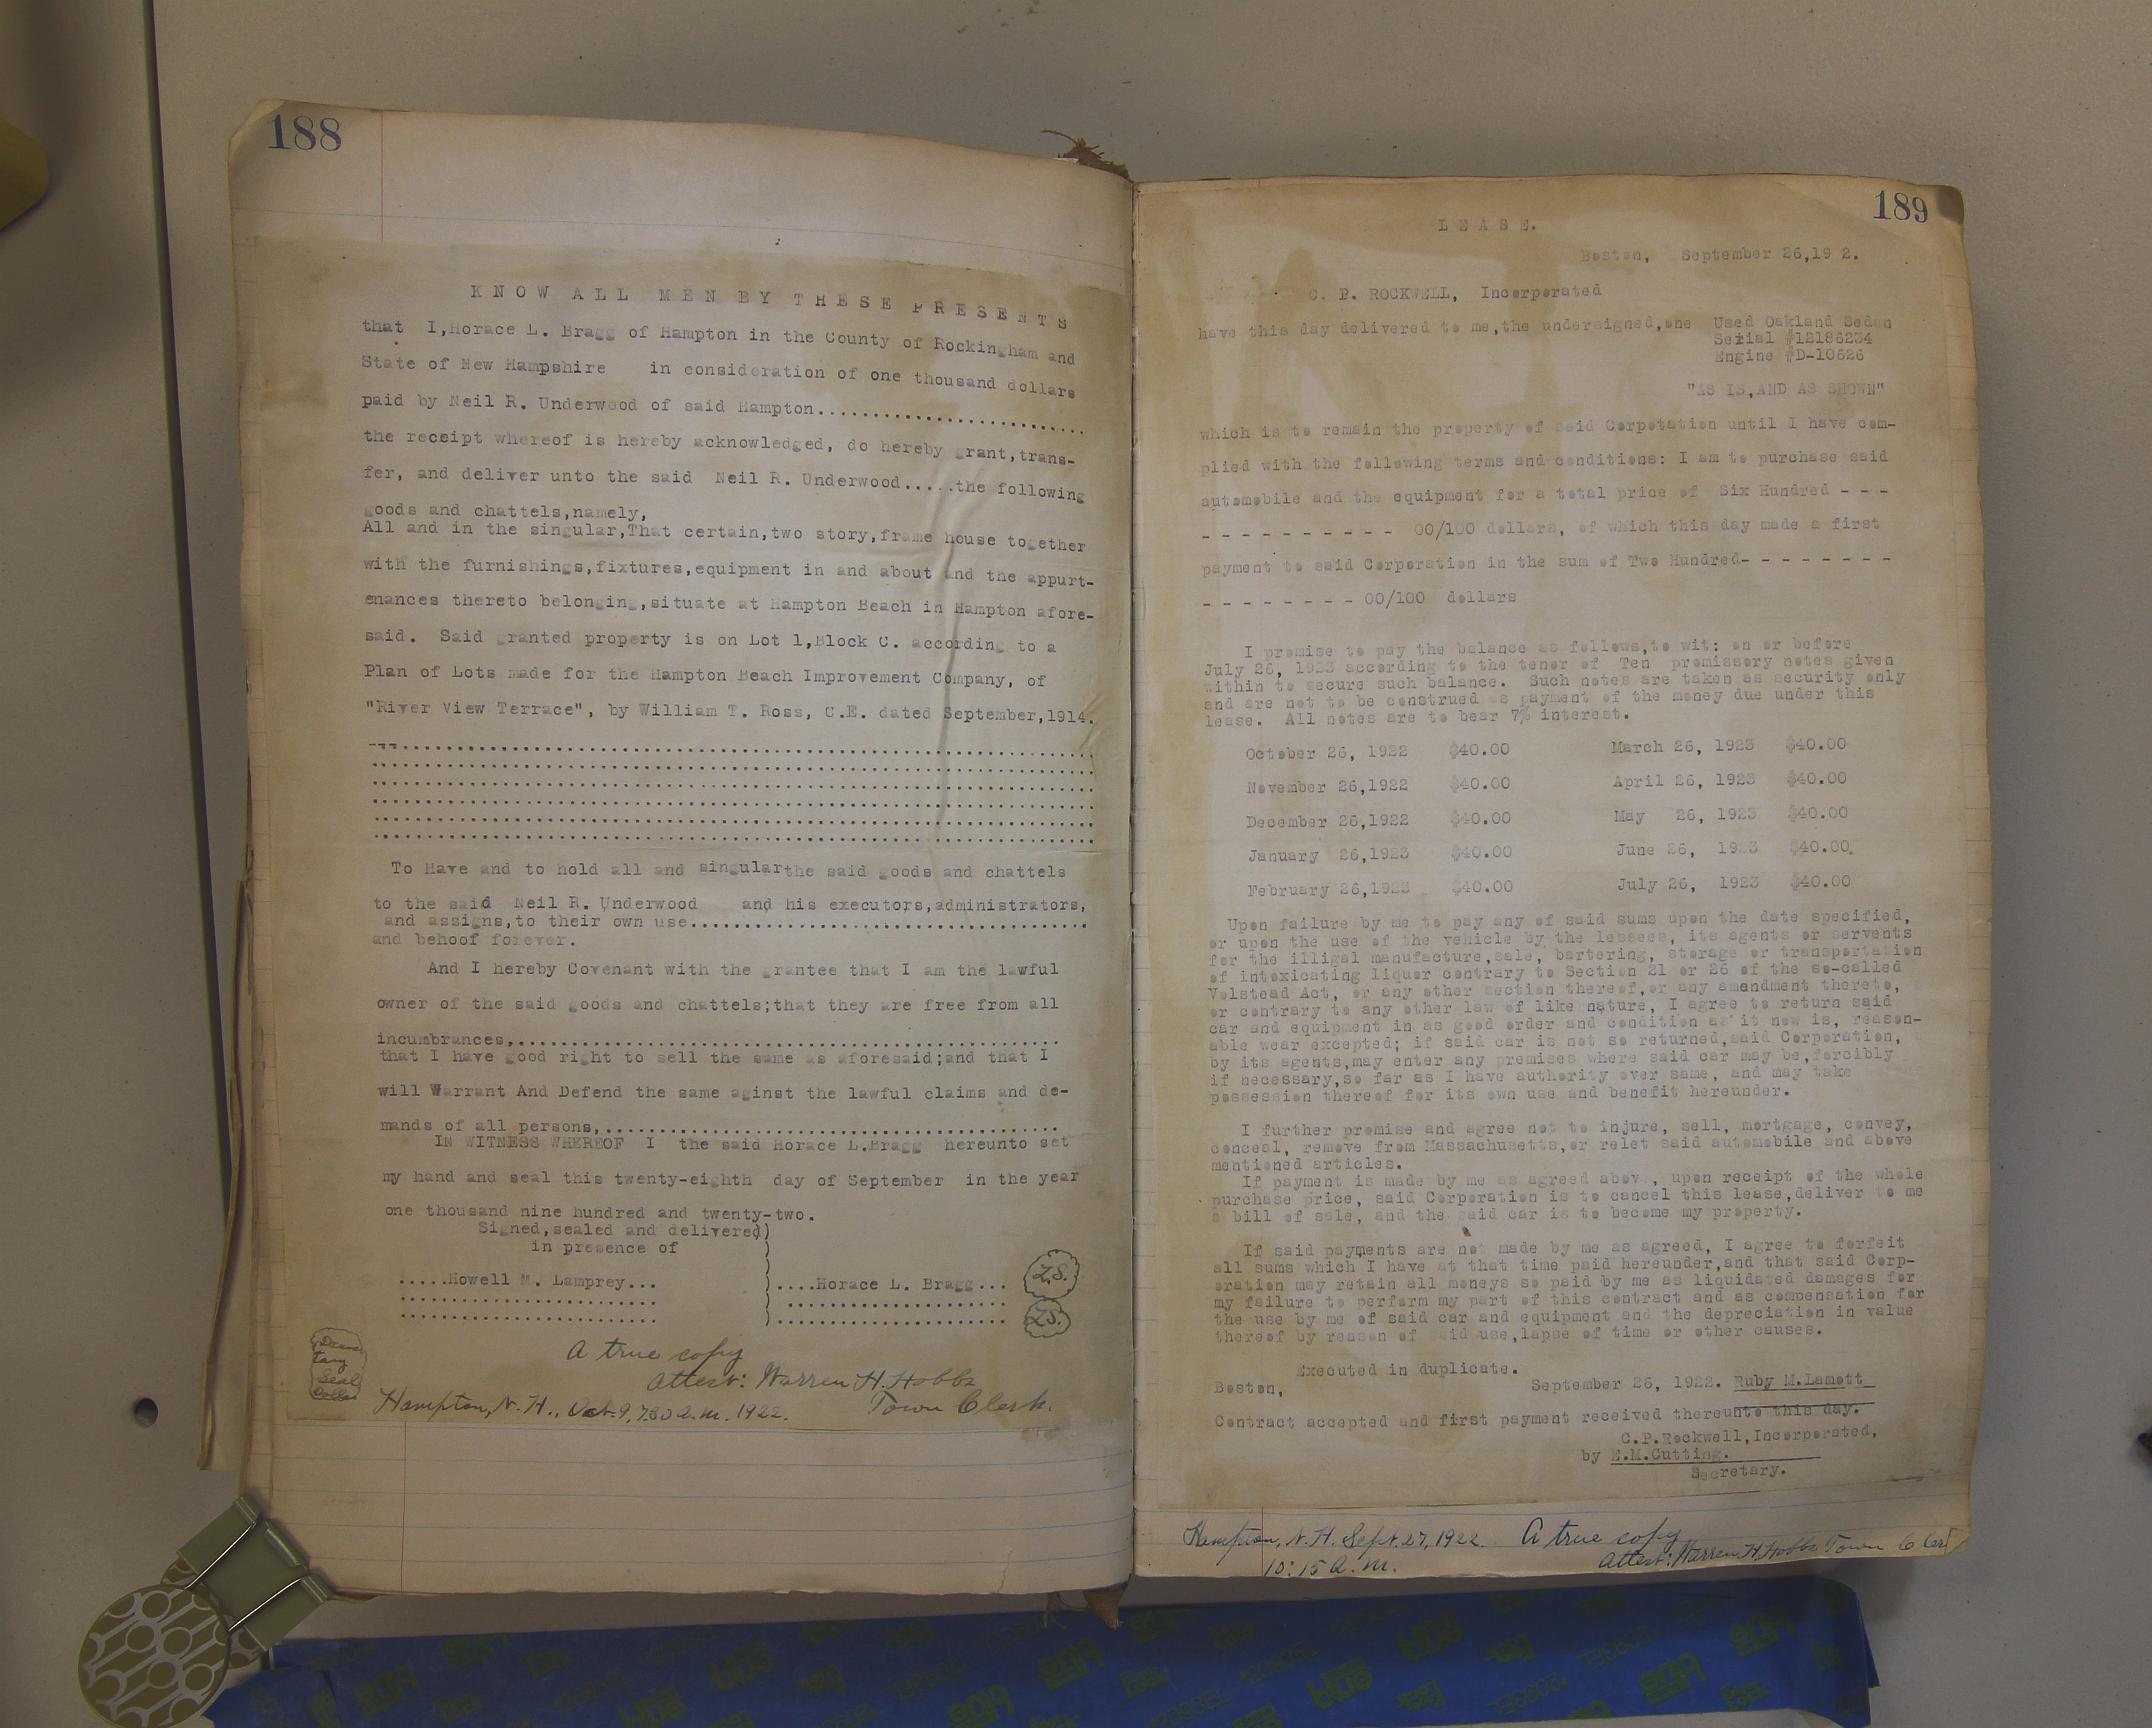 188
KNOW ALL MEN BY THESE PRESENTS
that I,Horace L. Bragg of Hampton in the County of Rockingham and
State of New Hampshire in consideration of one thousand dollars
paid by Neil R. Underwood of said Hampton..........................
the receipt whereof is hereby acknowledged, do hereby grant,trans-
fer, and deliver unto the said Neil R. Underwood.....the following
goods and chattels,namely,
All and in the singular,That certain,two story,frame house together
with the furnishings,fixtures,equipment in and about and the appurt-
enances thereto belonging,situate at Hampton Beach in Hampton afore-
said. Said granted property is on Lot 1,Block C. according to a
Plan of Lots made for the Hampton Beach Improvement Company, of
"River View Terrace", by William T. Ross, C.E. dated September,1914.
To Have and to hold all and singularthe said goods and chattels
to the said Neil R. Underwood and his executors,administrators,
and assigns,to their own use.......................................
and behoof forever.
And I hereby Covenant with the grantee that I am the lawful
owner of the said goods and chattels;that they are free from all
incumbrances,......................................................
that I have good right to sell the same as aforesaid;and that I
will Warrant And Defend the same aginst the lawful claims and de-
mands of all persons,..............................................
IN WITNESS WHEREOF I the said Horace L.Bragg hereunto set
my hand and seal this twenty-eighth day of September in the year
one thousand nine hundred and twenty-two.
Signed,sealed and delivered)
in presence of
.....Howell M. Lamprey... ....Horace L. Bragg... L.S.
L.S.
Seal
A true copy
Attest: Warren H. Hobbs
Hampton, N. H., Oct. 9, 7.30 A.M. 1922. Town Clerk.
189
LEASE.
Boston, September 26,19 2.
C. P. ROCKWELL, Incorporated
have this day delivered to me,the undersigned,one Used Oakland Sedan
Serial #12186234
Engine #D-10626
"AS IS,AND AS SHOWN"
which is to remain the property of said Corpotation until I have com-
plied with the following terms and conditions: I am to purchase said
automobile and the equipment for a total price of Six Hundred - - -
- - - - - - - - - - 00/100 dollars, of which this day made a first
payment to said Corporation in the sum of Two Hundred- - - - - - - -
- - - - - - - - 00/100 dollars
I promise to pay the balance as follows,to wit: on or before
July 26, 1923 according to the tenor of Ten promissory notes given
within to secure such balance. Such notes are taken as security only
and are not to be construed as payment of the money due under this
lease. All notes are to bear 7% interest.
October 26, 1922 $40.00 March 26, 1923 $40.00
November 26,1922 $40.00 April 26, 1923 $40.00
December 26,1922 $40.00 May 26, 1923 $40.00
January 26,1923 $40.00 June 26, 1923 $40.00.
February 26,1923 $40.00 July 26, 1923 $40.00
Upon failure by me to pay any of said sums upon the date specified,
or upon the use of the vehicle by the lessees, its agents or servents
for the illigal manufacture,sale, bartering, storage or transportation
of intoxicating liquor contrary to Section 21 or 26 of the so-called
Volstead Act, or any other section thereof,or any amendment thereto,
or contrary to any other law of like nature, I agree to return said
car and equipment in as good order and condition as it now is, reason-
able wear excepted; if said car is not so returned,said Corporation,
by its agents,may enter any premises where said car may be,forcibly
if necessary,so far as I have authority over same, and may take
possession thereof for its own use and benefit hereunder.
I further promise and agree not to injure, sell, mortgage, convey,
conceal, remove from Massachusetts,or relet said automobile and above
mentioned articles.
If payment is made by me as agreed above, upon receipt of the whole
purchase price, said Corporation is to cancel this lease,deliver to me
a bill of sale, and the said car is to become my property.
If said payments are not made by me as agreed, I agree to forfeit
all sums which I have at that time paid hereunder,and that said Corp-
oration may retain all moneys so paid by me as liquidated damages for
my failure to perform my part of this contract and as compensation for
the use by me of said car and equipment and the depreciation in value
thereof by reason of said use,lapse of time or other causes.
Executed in duplicate.
Boston, September 26, 1922. Ruby M.Lamott
Contract accepted and first payment received thereunto this day.
C.P.Rockwell,Incorporated,
by E.M.Cutting.
Secretary.
Hampton, N. H. Sept. 27, 1922. A true copy
10:15 A.M. Attest: Warren H. Hobbs Town Cler